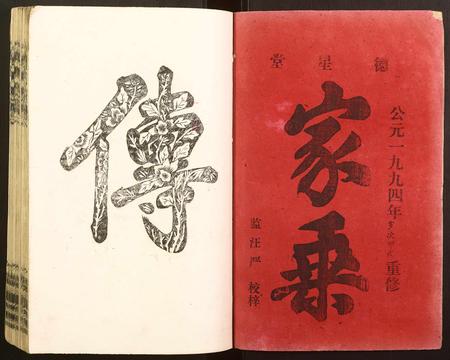 德星堂
公元一九九四年岁次甲戌重修
家乘
监汪 校梓
傳